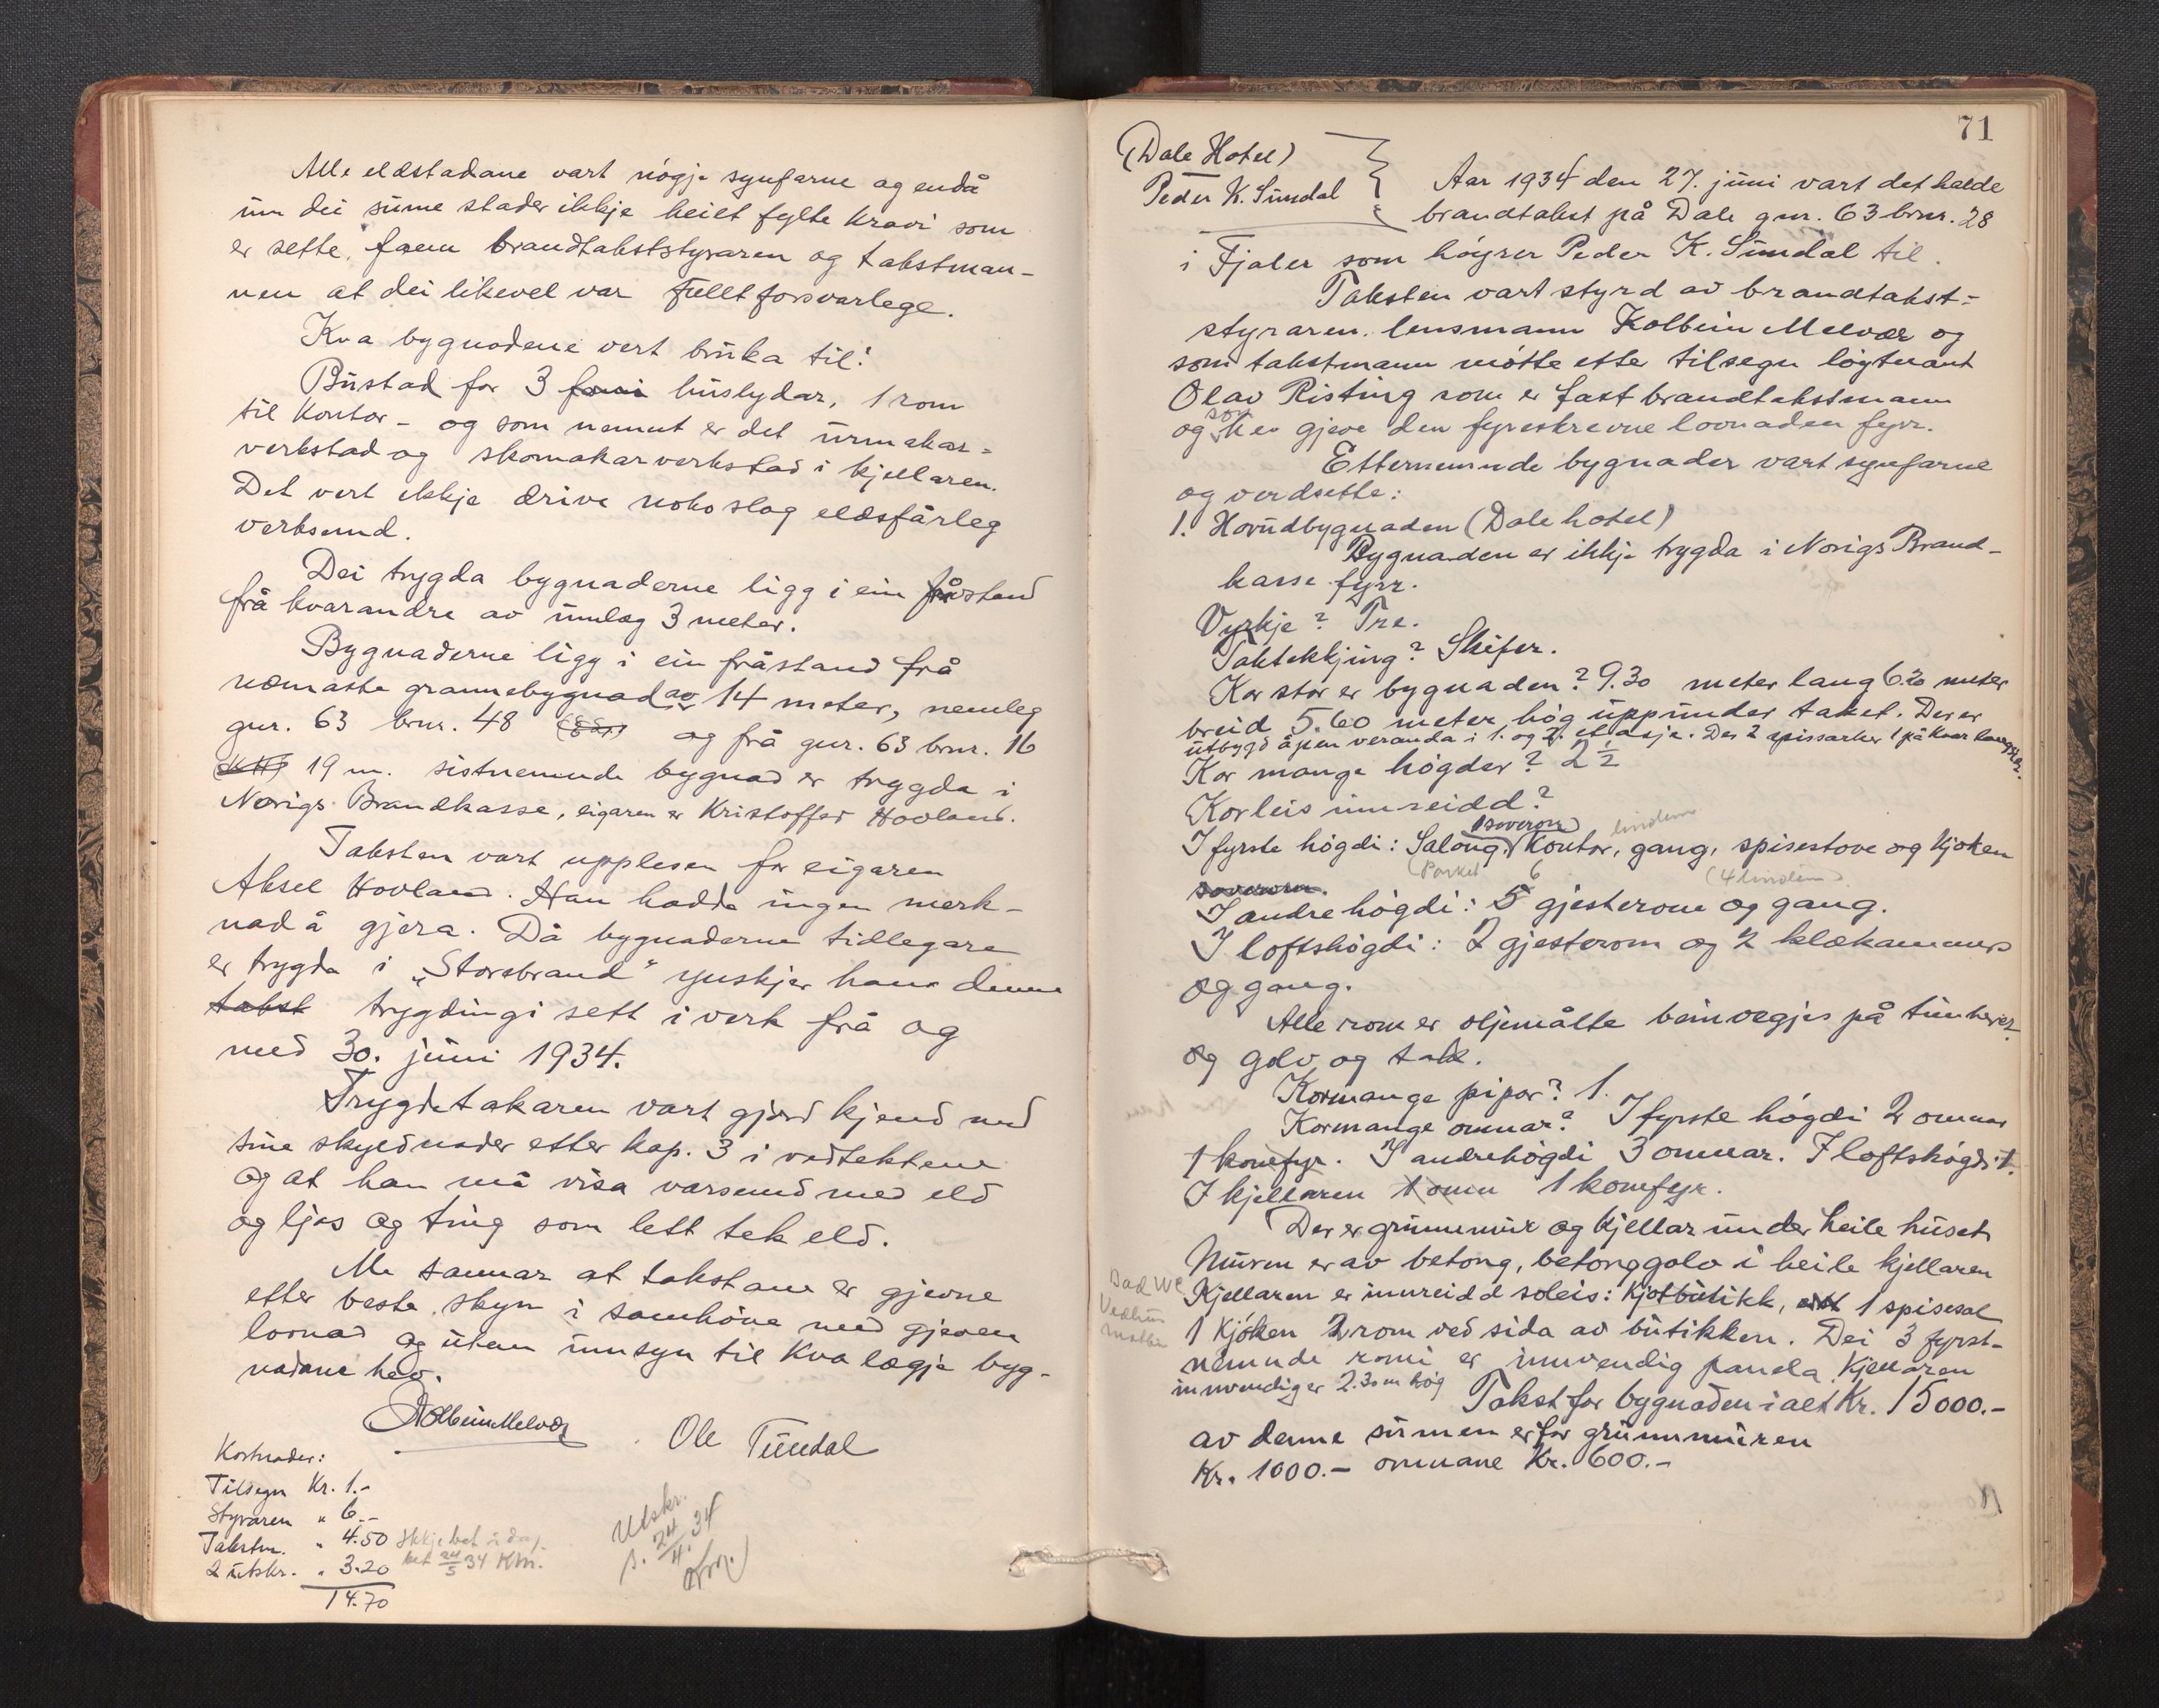 Alle eldstadane vart nögje synfarne og endå
um dei sume stader ikkje heilt fylte kravi som
er sette, fann brandtakststyraren og takstman-
nen at dei likevel var fullt forsvarlege.
Kva bygnadene vert bruka til:
Bustad for 3 huslydar, 1 rom
til kontor - og som nemnt er det urmakar-
verkstad og skomakarverkstad i kjellaren.
Det vert ikkje drive noko slag eldsfårleg
verksemd.
Dei trygda bygnaderne ligg i ein fråstand
frå kvarandre av umlag 3 meter.
Bygnaderne ligg i ein fråstand frå
næmaste grannebygnad av 14 meter, nemleg
gnr. 63 brnr. 48 og frå gnr. 63 brnr. 16
19 m. sistnemnde bygnad er trygda i
Norigs Brandkasse, eigaren er Kristoffer Hovland.
Taksten vart upplesen for eigaren
Aksel Hovland. Han hadde ingen merk-
nad å gjera. Då bygnaderne tidlegare
er trygda i "Storebrand" ynskjer han denne
takst trygdingi sett i verk frå og
med 30. juni 1934.
Trygdetakaren vart gjord kjend med
sine skyldnader etter kap. 3 i vedtektene
og at han må visa varsemd med eld
og ljos og ting som lett tek eld.
Me sannar at takstane er gjevne
etter beste skyn i samhöve med gjeven
lovnad og utan umsyn til kva lægje byg-
nadane hev.
Kolbein Melvær
Ole Tundal
Kostnader:
Tilsegn Kr. 1.-
Styraren " 6.-
Takstm. " 4.50 Ikkje bet i dag.
2 utskr. " 3.20 bet 24/5 34 KM.
14.70
Utskr.
s. 24/4. 34
71
(Dale Hotel)
Peder K. Sundal
Aar 1934 den 27. juni vart det halde
brandtakst på Dale gnr. 63 brnr. 28
i Fjaler som höyrer Peder K. Sundal til.
Taksten vart styrd av brandtakst-
styraren. lensmann Kolbein Melvær og
som takstmann mötte etter tilsegn löytnant
Olav Risting som er fast brandtakstmann
og som hev gjeve den fyreskrevne lovnaden fyrr.
Etternemnde bygnader vart synfarne
og verdsette:
1. Hovudbygnaden (Dale hotel)
Bygnaden er ikkje trygda i Norigs Brand-
kasse fyrr.
Vyrkje? Tre.
Taktekkjing? Skifer.
Kor stor er bygnaden? 9.30 meter lang 6.20 meter
breid 5.60 meter hög uppunder taket. Der er
utbygd åpen veranda i 1. og 2. etasje. Der 2 spissarker 1 på kvar langside.
Kor mange högder? 2 1/2
Korleis innreidd?
1 soverom linolem
I fyrste högdi: Salong, kontor, gang, spisestove og kjöken
soverom. (Parket 6 (4 linolem)
I andre högdi: 5 gjesterom og gang.
I loftshögdi: 2 gjesterom og 2 klækammers
og gang.
Alle rom er oljemålte beinvegjes på timberet
og golv og tak.
Kormange pipor? 1.
Kormange omnar? I fyrste högdi 2 omnar
1 komfyr. I andrehögdi 3 omnar. I loftshögdi 1.
I kjellaren 1 omn 1 komfyr.
Der er grunnmur og kjellar under heile huset
Muren er av betong, betonggolv i heile kjellaren
Bad WC
Kjellaren er innreidd soleis: Kjötbutikk, 1 spisesal
1 Kjöken 2 rom ved sida av butikken. Dei 3 fyrst-
nemnde romi er innvendig panela. Kjellaren
innvendig er 2.30 m hög
Takst for bygnaden i alt Kr. 15000.-
av denne sumen er for grunnmuren
Kr. 1000.- omnane Kr. 600.-